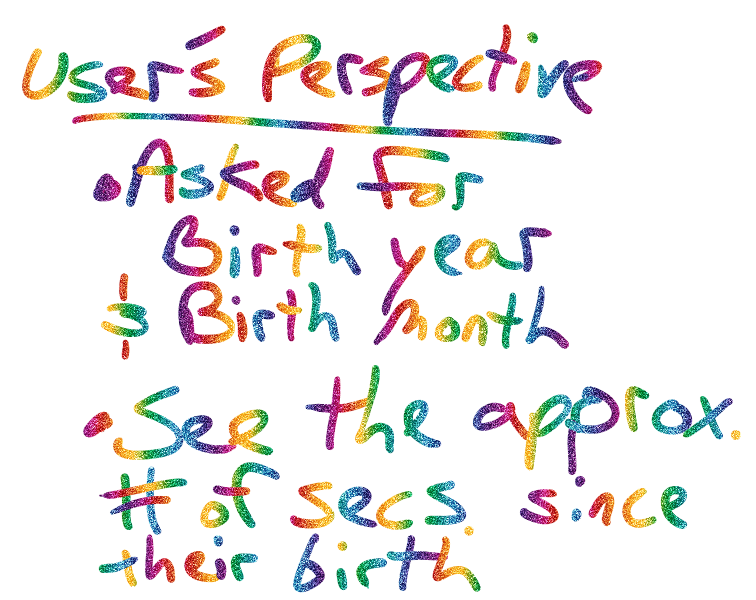 User's Perspective
• Asked For
Birth year
& Birth Month
• See the approx.
# of secs. since
their birth